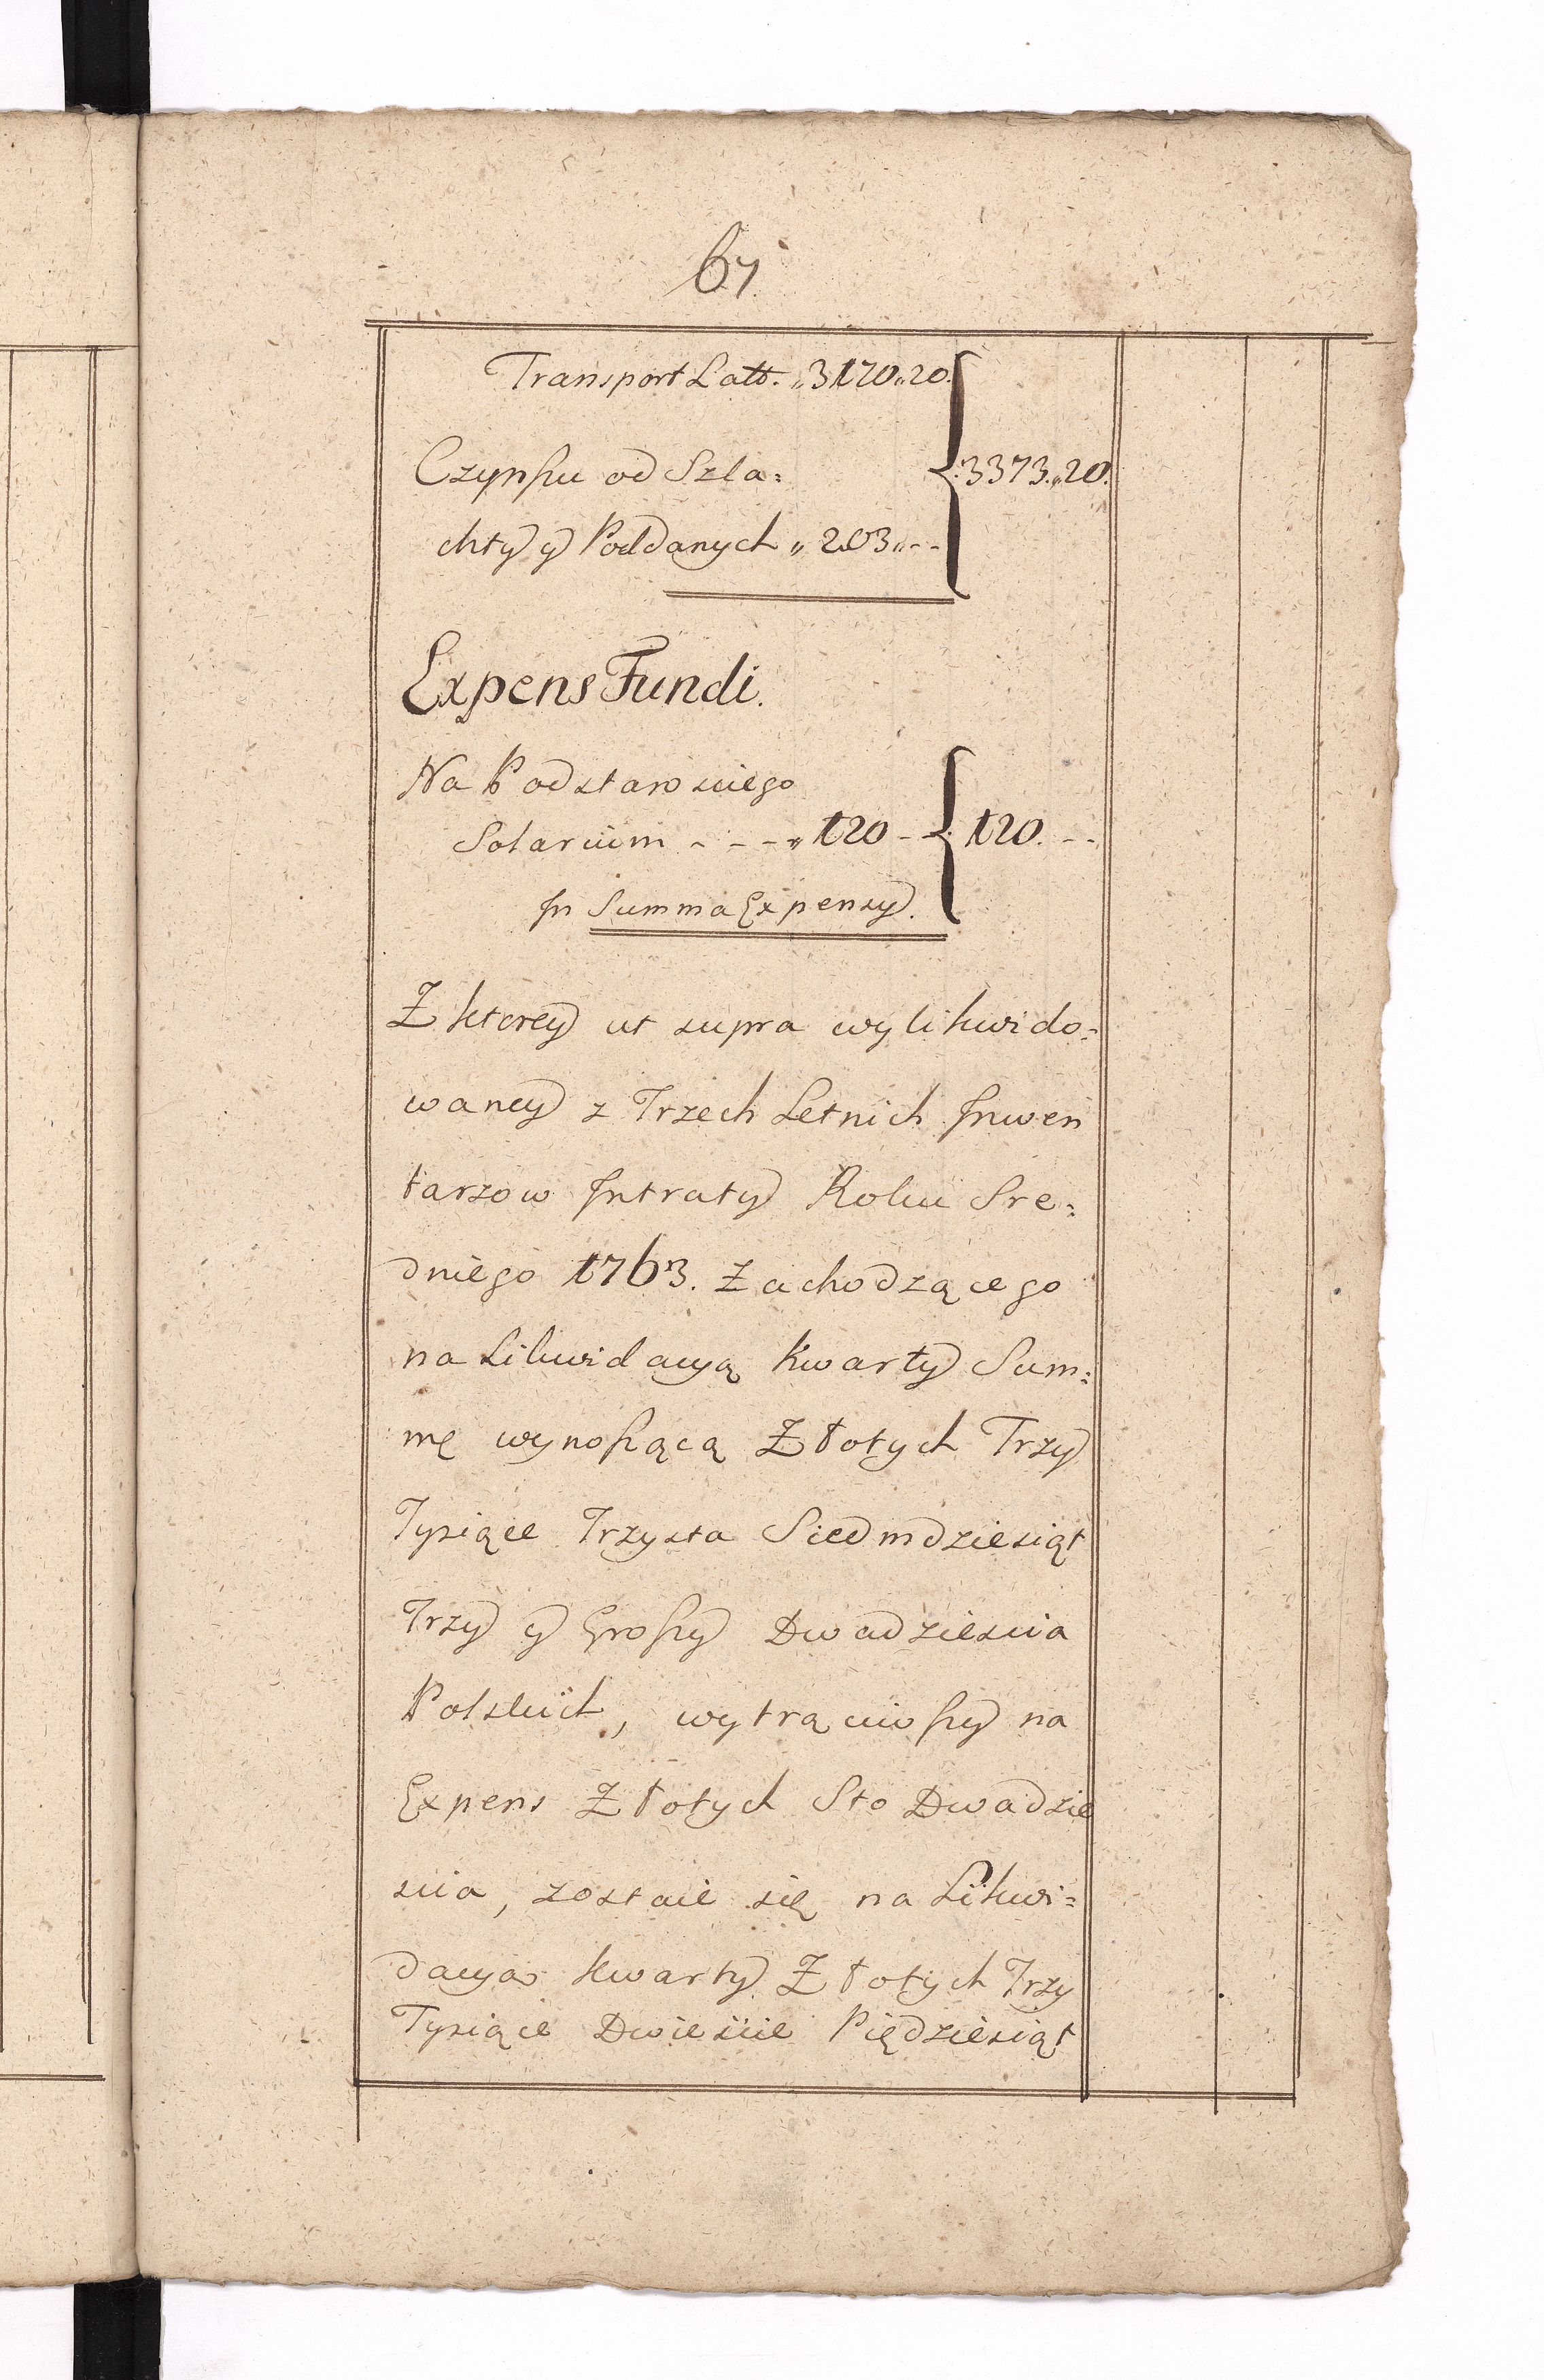 67
Transport Latt. „3170„20.
Czynszu od Szla=
chty y Poddanych „203„--
3373„20.
Expens Fundi.
Na Podstarosciego
Solarium - - - „120 - 120. - -
In Summa Expensy.
Z ktorey ut supra wylikwido=
waney z Trzech Letnich Inwen
tarzow Intraty Roku Sre=
dniego 1763. Zachodzącego
na Likwidacyą Kwarty Sum=
mę wynoszącą Złotych Trzy
Tysiące Trzysta Siedmdziesiąt
Trzy y Groszy Dwadziescia
Polskich, wytrąciwszy na
Expens Złotych Sto Dwadzie
scia, zostaie się na Likwi=
dacya kwarty Złotych Trzy
Tysiące Dwiescie Piędziesiąt